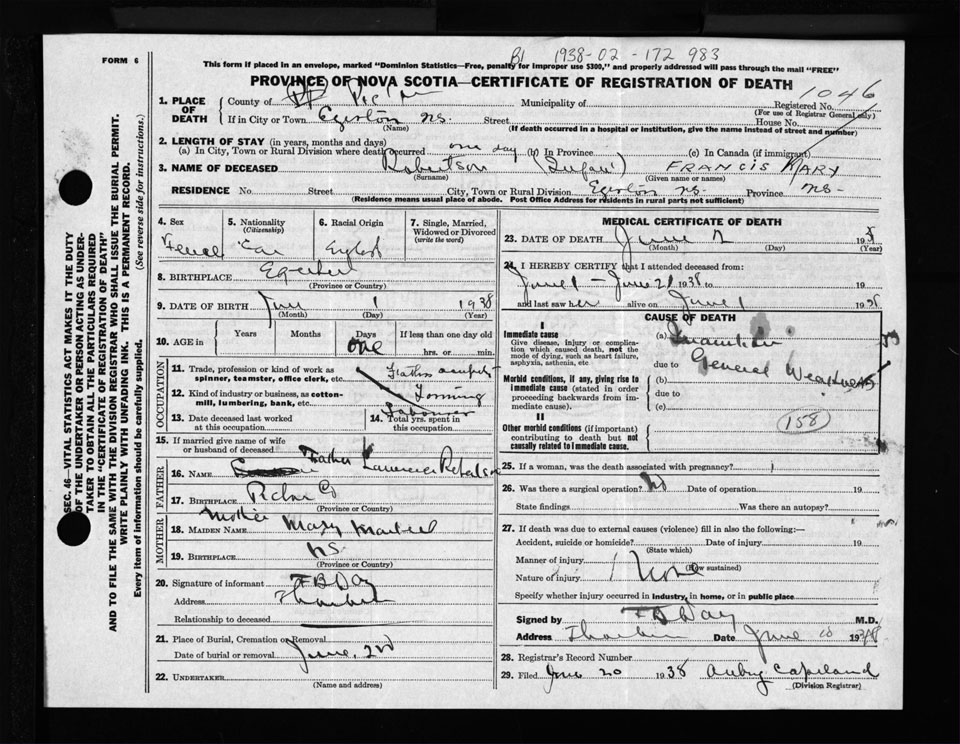 B1 1938-02-172 983
FORM 6
This form if placed in an envelope, marked "Dominion Statistics—Free, penalty for improper use $300," and properly addressed will pass through the mail "FREE"
PROVINCE OF NOVA SCOTIA—CERTIFICATE OF REGISTRATION OF DEATH
1046
1. PLACE OF DEATH
County of Pictou Municipality of Registered No.
(For use of Registrar General only)
If in City or Town Egerton N.S. Street House No.
(Name) (If death occurred in a hospital or institution, give the name instead of street and number)
2. LENGTH OF STAY (in years, months and days)
(a) In City, Town or Rural Division where death occurred one day (b) In Province (c) In Canada (if immigrant)
3. NAME OF DECEASED Robertson (Infant) FRANCIS MARY
(Surname) (Given name or names)
RESIDENCE No. Street City, Town or Rural Division Egerton N.S. Province N.S.
(Residence means usual place of abode. Post Office Address for residents in rural parts not sufficient)
SEC. 46—VITAL STATISTICS ACT MAKES IT THE DUTY
OF THE UNDERTAKER OR PERSON ACTING AS UNDER-
TAKER TO OBTAIN ALL THE PARTICULARS REQUIRED
IN THE "CERTIFICATE OF REGISTRATION OF DEATH"
AND TO FILE THE SAME WITH THE DIVISION REGISTRAR WHO SHALL ISSUE THE BURIAL PERMIT.
WRITE PLAINLY WITH UNFADING INK. THIS IS A PERMANENT RECORD.
Every item of information should be carefully supplied. (See reverse side for instructions.)
4. Sex 5. Nationality (Citizenship) 6. Racial Origin 7. Single, Married, Widowed or Divorced (write the word)
Can
8. BIRTHPLACE
(Province or Country)
9. DATE OF BIRTH June 1 1938
(Month) (Day) (Year)
10. AGE in Years Months Days If less than one day old
one hrs. or min.
OCCUPATION
11. Trade, profession or kind of work as spinner, teamster, office clerk, etc.
12. Kind of industry or business, as cotton-mill, lumbering, bank, etc.
Labourer
13. Date deceased last worked at this occupation
14. Total yrs. spent in this occupation
15. If married give name of wife or husband of deceased
FATHER
16. NAME Father Lawrence Robertson
17. BIRTHPLACE Pictou Co
(Province or Country)
MOTHER
Mother
18. MAIDEN NAME Mary
19. BIRTHPLACE NS.
(Province or Country)
20. Signature of informant F B Day
Address Thorburn
Relationship to deceased
21. Place of Burial, Cremation or Removal
Date of burial or removal June, 2nd
22. UNDERTAKER
(Name and address)
MEDICAL CERTIFICATE OF DEATH
23. DATE OF DEATH June 2 193
(Month) (Day) (Year)
24. I HEREBY CERTIFY that I attended deceased from:
June 1 - June 2 1938 to 19
and last saw her alive on June 1 19
CAUSE OF DEATH
I
Immediate cause
Give disease, injury or complication which caused death, not the mode of dying, such as heart failure, asphyxia, asthenia, etc.
(a) Inanition
due to General Weakness
Morbid conditions, if any, giving rise to immediate cause (stated in order proceeding backwards from immediate cause).
(b)
due to
(c)
158
II
Other morbid conditions (if important) contributing to death but not causally related to immediate cause.
25. If a woman, was the death associated with pregnancy?
26. Was there a surgical operation? No Date of operation 19
State findings Was there an autopsy?
27. If death was due to external causes (violence) fill in also the following:—
Accident, suicide or homicide? Date of injury 19
(State which)
Manner of injury
(How sustained)
Nature of injury None
Specify whether injury occurred in industry, in home, or in public place
Signed by F B Day M.D.
Address Thorburn Date June 10 1938
28. Registrar's Record Number
29. Filed June 20 1938 Aubrey Copeland
(Division Registrar)